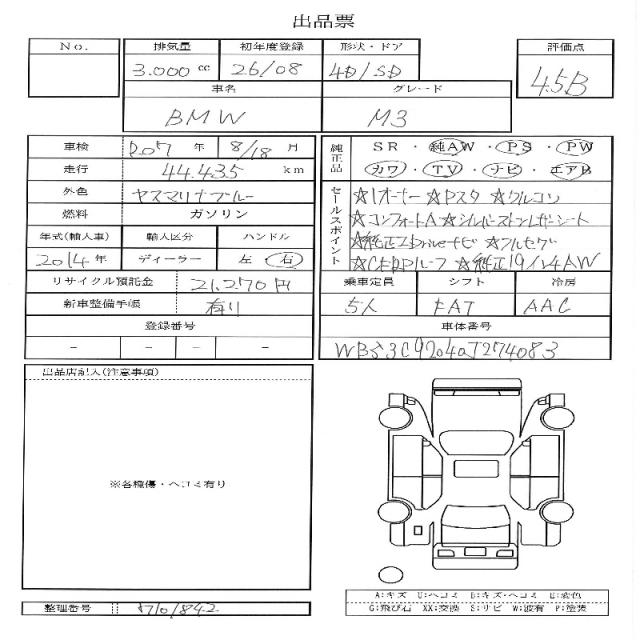 出品票
No. 排気量 初年度登録 形状・ドア 評価点
3.000 cc 26/08 4D/SD 4.5B
車名 グレード
BMW M3
車検 R07 年 8/18 月
走行 44.435 km
外色 ヤスマリナブルー
燃料 ガソリン
年式(輸入車) 輸入区分 ハンドル
2014年 ディーラー 左 右
リサイクル預託金 21,270円
新車整備手帳 有り
登録番号
- - - -
純正品 SR・純AW・PS・PW
カワ・TV・ナビ・エアB
セールスポイント ☆1オーナー ☆Pスタ ☆クルコン
☆コンフォートA ☆シルバーストンレザーシート
☆純正iDriveナビ ☆フルセグ
☆CFRPルーフ ☆純正19インチAW
乗車定員 シフト 冷房
5人 FAT AAC
車体番号
WBS3C92040J274083
出品店記入(注意事項)
※各種傷・ヘコミ有り
整理番号 5701842
A:キズ U:ヘコミ B:キズ・ヘコミ E:変色
G:飛び石 XX:交換 S:サビ W:波有 P:塗装